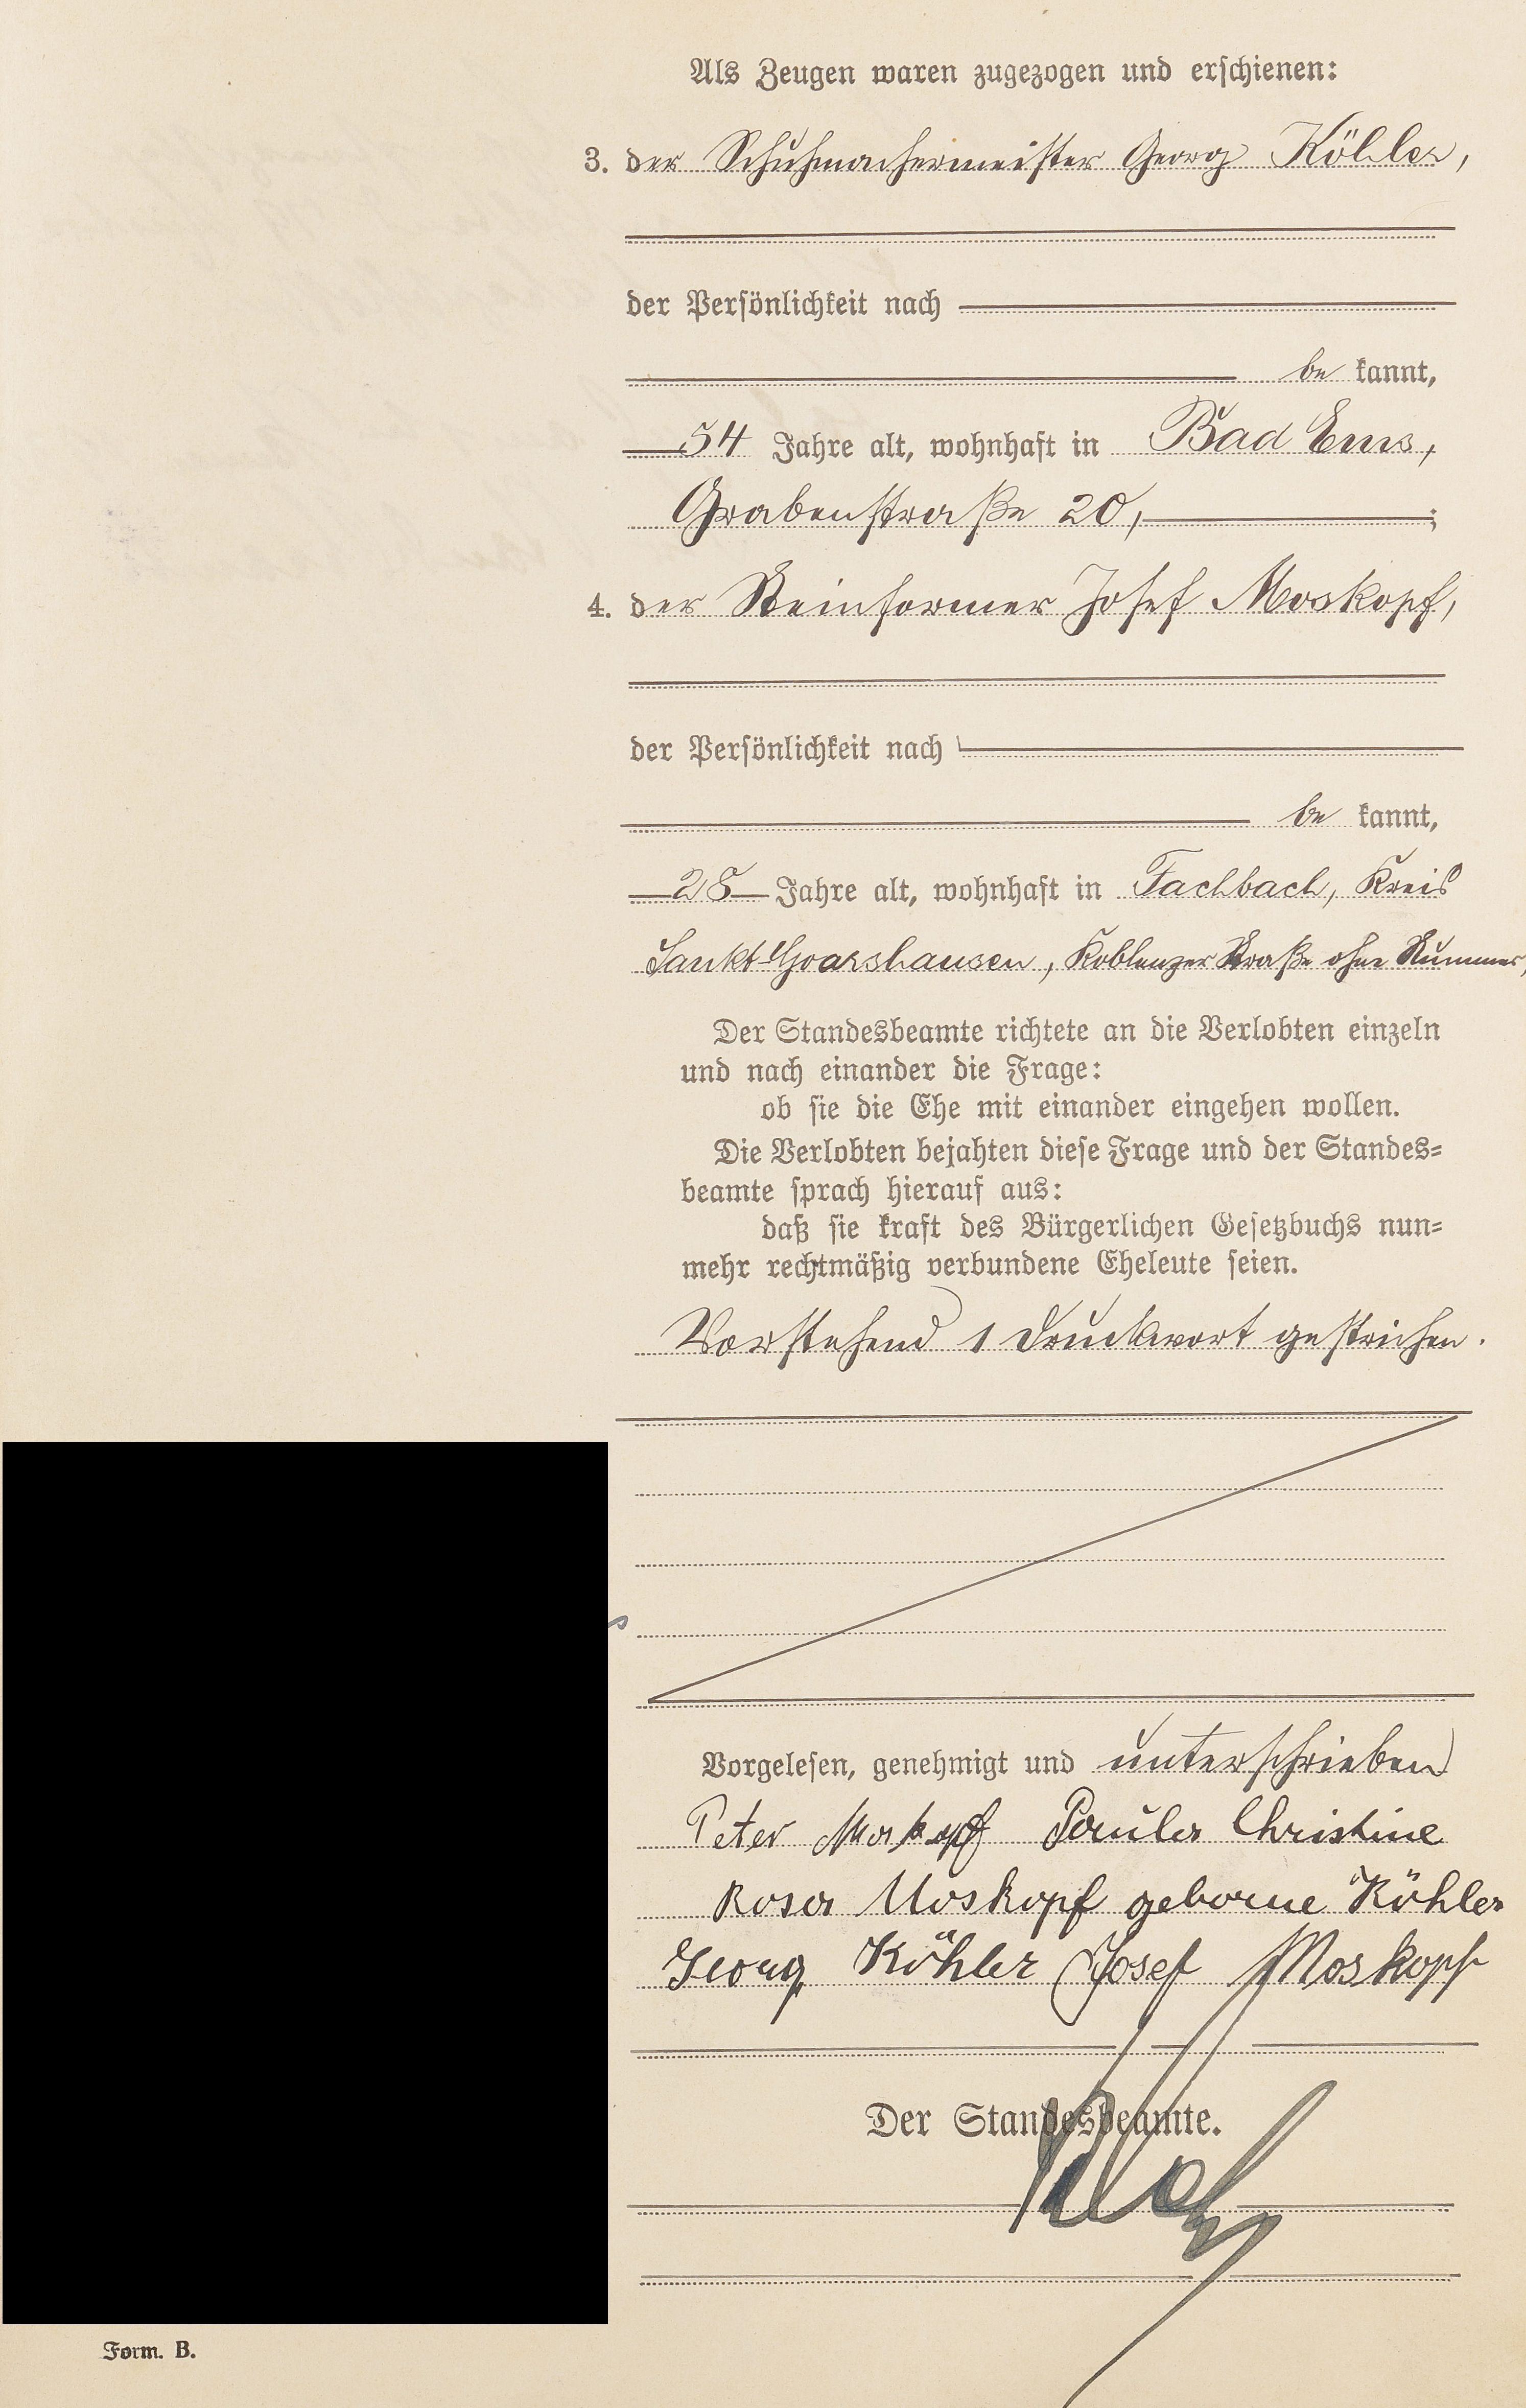 Als Zeugen waren zugezogen und erschienen:
3. der Schuhmachermeister Georg Köhler,
der Persönlichkeit nach
be kannt,
54 Jahre alt, wohnhaft in Bad Ems,
Grabenstraße 20, ;
4. der Steinformer Josef Moskopf,
der Persönlichkeit nach
be kannt,
28 Jahre alt, wohnhaft in Fachbach, Kreis
Sankt Goarshausen, Koblenzer Straße ohne Nummer,
Der Standesbeamte richtete an die Verlobten einzeln
und nach einander die Frage:
ob sie die Ehe mit einander eingehen wollen.
Die Verlobten bejahten diese Frage und der Standes=
beamte sprach hierauf aus:
daß sie kraft des Bürgerlichen Gesetzbuchs nun=
mehr rechtmäßig verbundene Eheleute seien.
Vorstehend 1 Druckwort gestrichen.
Vorgelesen, genehmigt und unterschrieben
Peter Moskopf Paula Christine
Rosa Moskopf geborne Köhler
Georg Köhler Josef Moskopf
Der Standesbeamte.
Form. B.